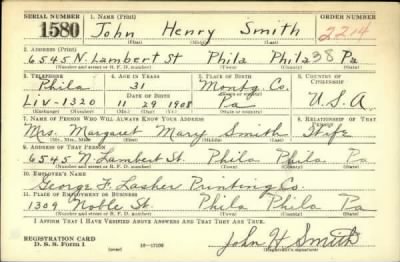 SERIAL NUMBER 1. NAME (Print) ORDER NUMBER
1580 John Henry Smith 2214
(First) (Middle) (Last)
2. ADDRESS (Print)
6545 N. Lambert St Phila Phila 38 Pa
(Number and street or R. F. D. number) (Town) (County) (State)
3. TELEPHONE 4. AGE IN YEARS 5. PLACE OF BIRTH 6. COUNTRY OF CITIZENSHIP
Phila 31 Montg. Co.
DATE OF BIRTH
LIV-1320 11 29 1908 Pa U.S.A.
(Exchange) (Number) (Mo.) (Day) (Yr.) (State or country)
7. NAME OF PERSON WHO WILL ALWAYS KNOW YOUR ADDRESS 8. RELATIONSHIP OF THAT PERSON
Mrs. Margaret Mary Smith Wife
(Mr., Mrs., Miss) (First) (Middle) (Last)
9. ADDRESS OF THAT PERSON
6545 N. Lambert St. Phila Phila Pa
(Number and street or R. F. D. number) (Town) (County) (State)
10. EMPLOYER'S NAME
George F. Lasher Printing Co.
11. PLACE OF EMPLOYMENT OR BUSINESS
1309 Noble St. Phila Phila Pa
(Number and street or R. F. D. number) (Town) (County) (State)
I AFFIRM THAT I HAVE VERIFIED ABOVE ANSWERS AND THAT THEY ARE TRUE.
REGISTRATION CARD
D. S. S. Form 1 (over) 16-17105 John H Smith
(Registrant's signature)